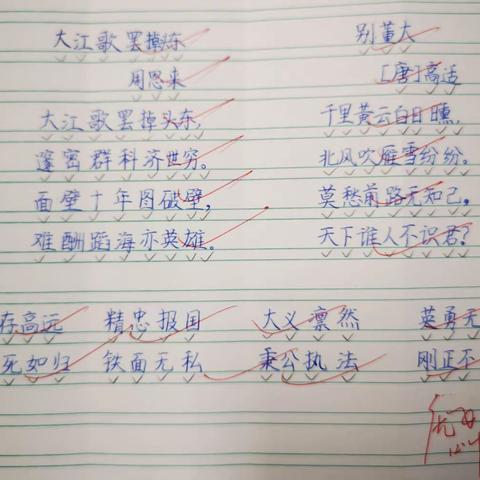 大江歌罢掉东
周恩来
大江歌罢掉头东,
邃密群科济世穷。
面壁十年图破壁,
难酬蹈海亦英雄。
别董大
[唐]高适
千里黄云白日曛,
北风吹雁雪纷纷。
莫愁前路无知己,
天下谁人不识君?
存高远 精忠报国 大义凛然 英勇无
死如归 铁面无私 秉公执法 刚正不